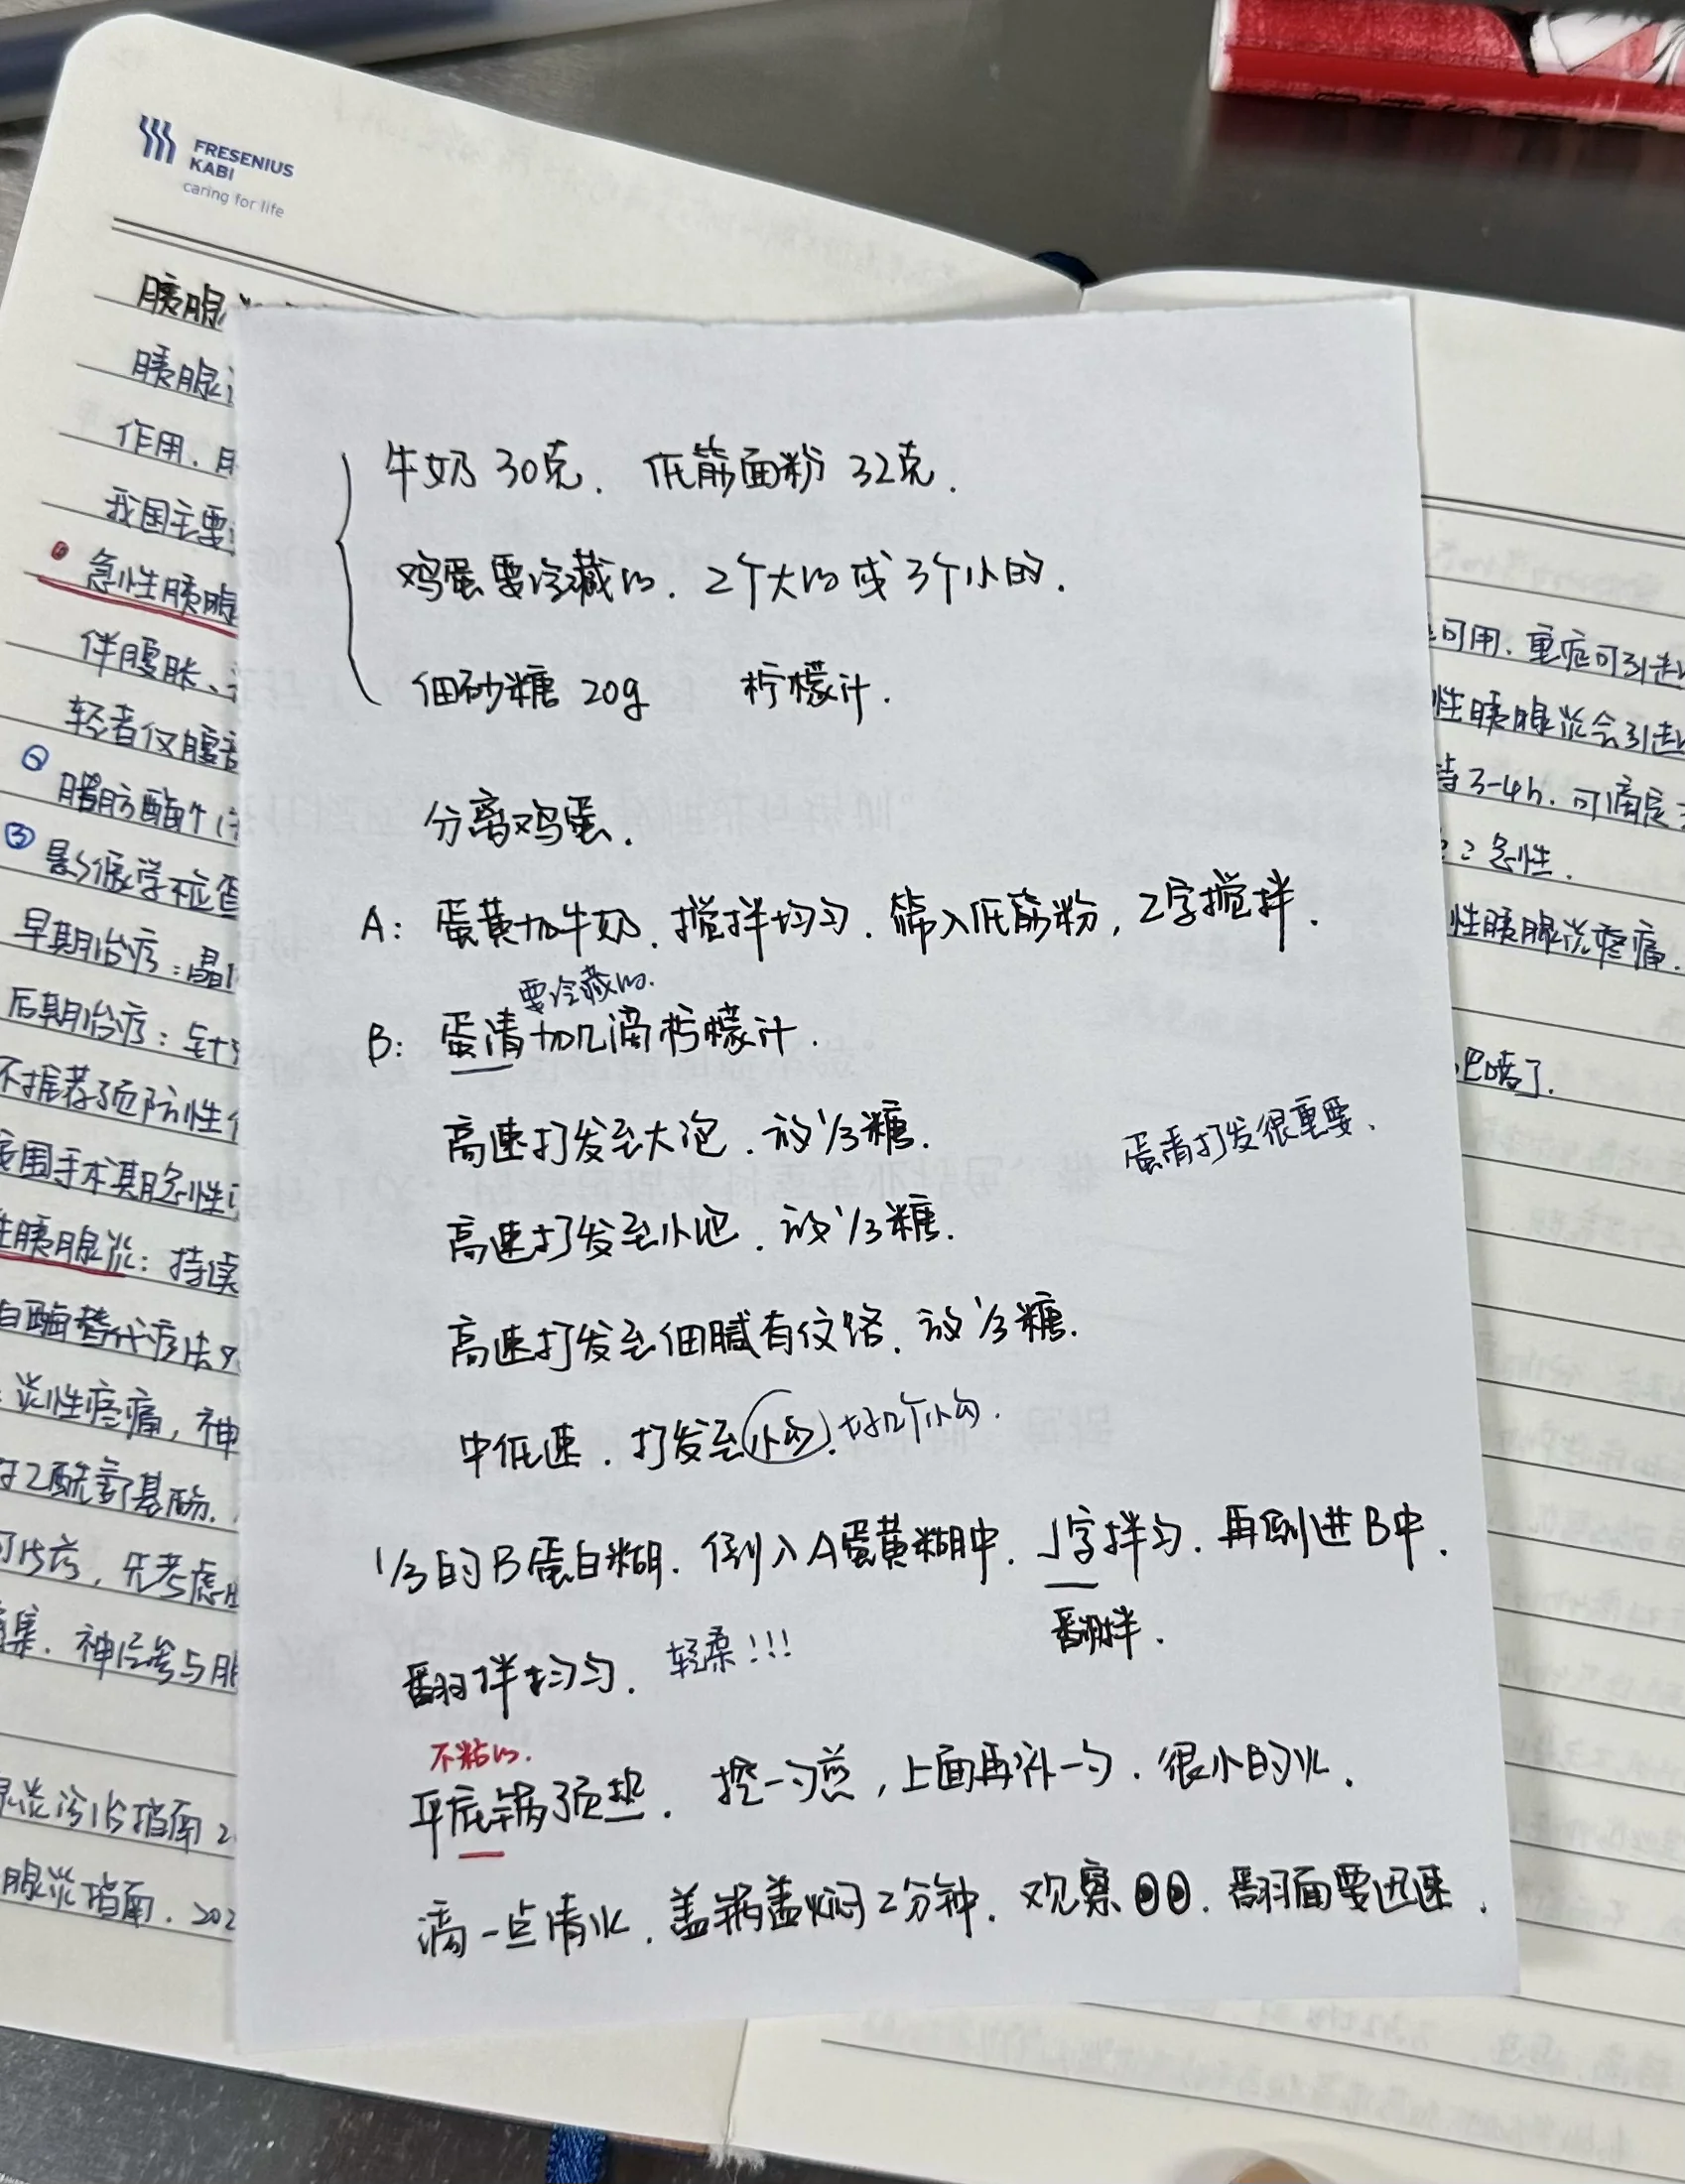 FRESENIUS
KABI
caring for life
胰腺
胰腺
作用.
我国主要
急性胰腺
伴腹胀、
轻者仅腹
② 脂肪酶
③ 影像学检查
早期治疗:晶
后期治疗:
不推荐预防性
围手术期急性
性胰腺炎:持续
白酶替代疗法
炎性疼痛,神
对乙酰氨基酚.
可待, 先考虑
集. 神经参与
炎诊治指南 2
腺炎指南. 202
牛奶 30克. 低筋面粉 32克.
鸡蛋要冷藏的. 2个大的或 3个小的.
细砂糖 20g 柠檬汁.
分离鸡蛋.
A: 蛋黄加牛奶. 搅拌均匀. 筛入低筋粉, Z字搅拌.
要冷藏的.
B: 蛋清加几滴柠檬汁.
高速打发至大泡. 放 1/3 糖.
蛋清打发很重要.
高速打发至小泡. 放 1/3 糖.
高速打发至细腻有纹络. 放 1/3 糖.
中低速. 打发至小勾. 好几个小勾.
1/3 的 B 蛋白糊. 倒入 A 蛋黄糊中. J字拌匀. 再倒进 B 中.
翻拌.
翻拌均匀. 轻柔!!!
不粘的.
平底锅预热. 挖一勺煎, 上面再补一勺. 很小的火.
滴一点清水. 盖锅盖焖 2分钟. 观察. 翻面要迅速.
可用. 重症可引起
性胰腺炎会引起
3-4h. 可滴定
急性.
性胰腺炎疼痛.
吧嗒了.